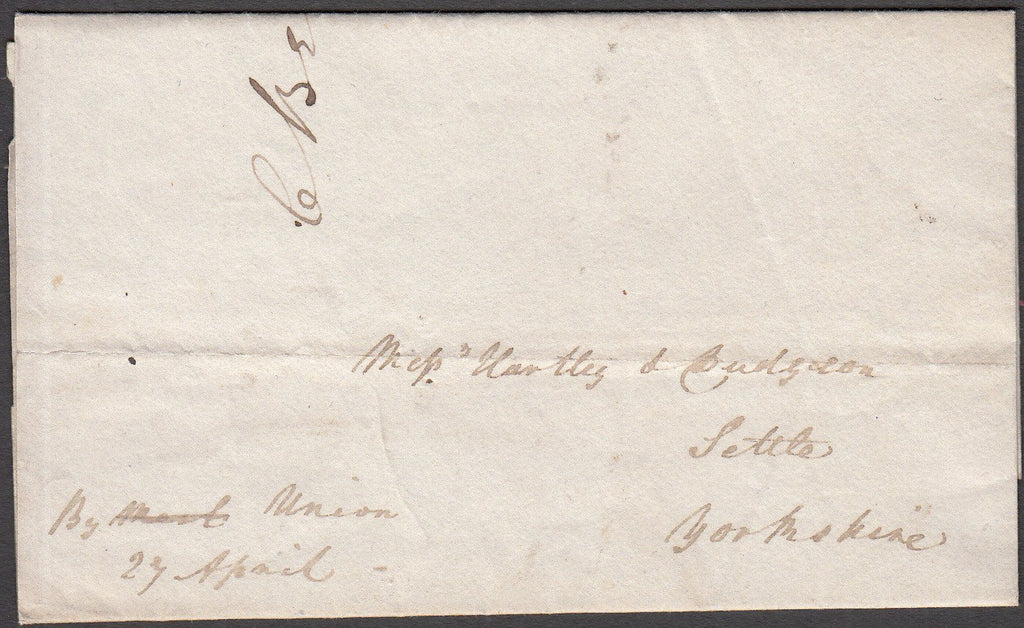 Messrs Hartley & Dudgeon
Settle
Yorkshire
By Union
27 April -